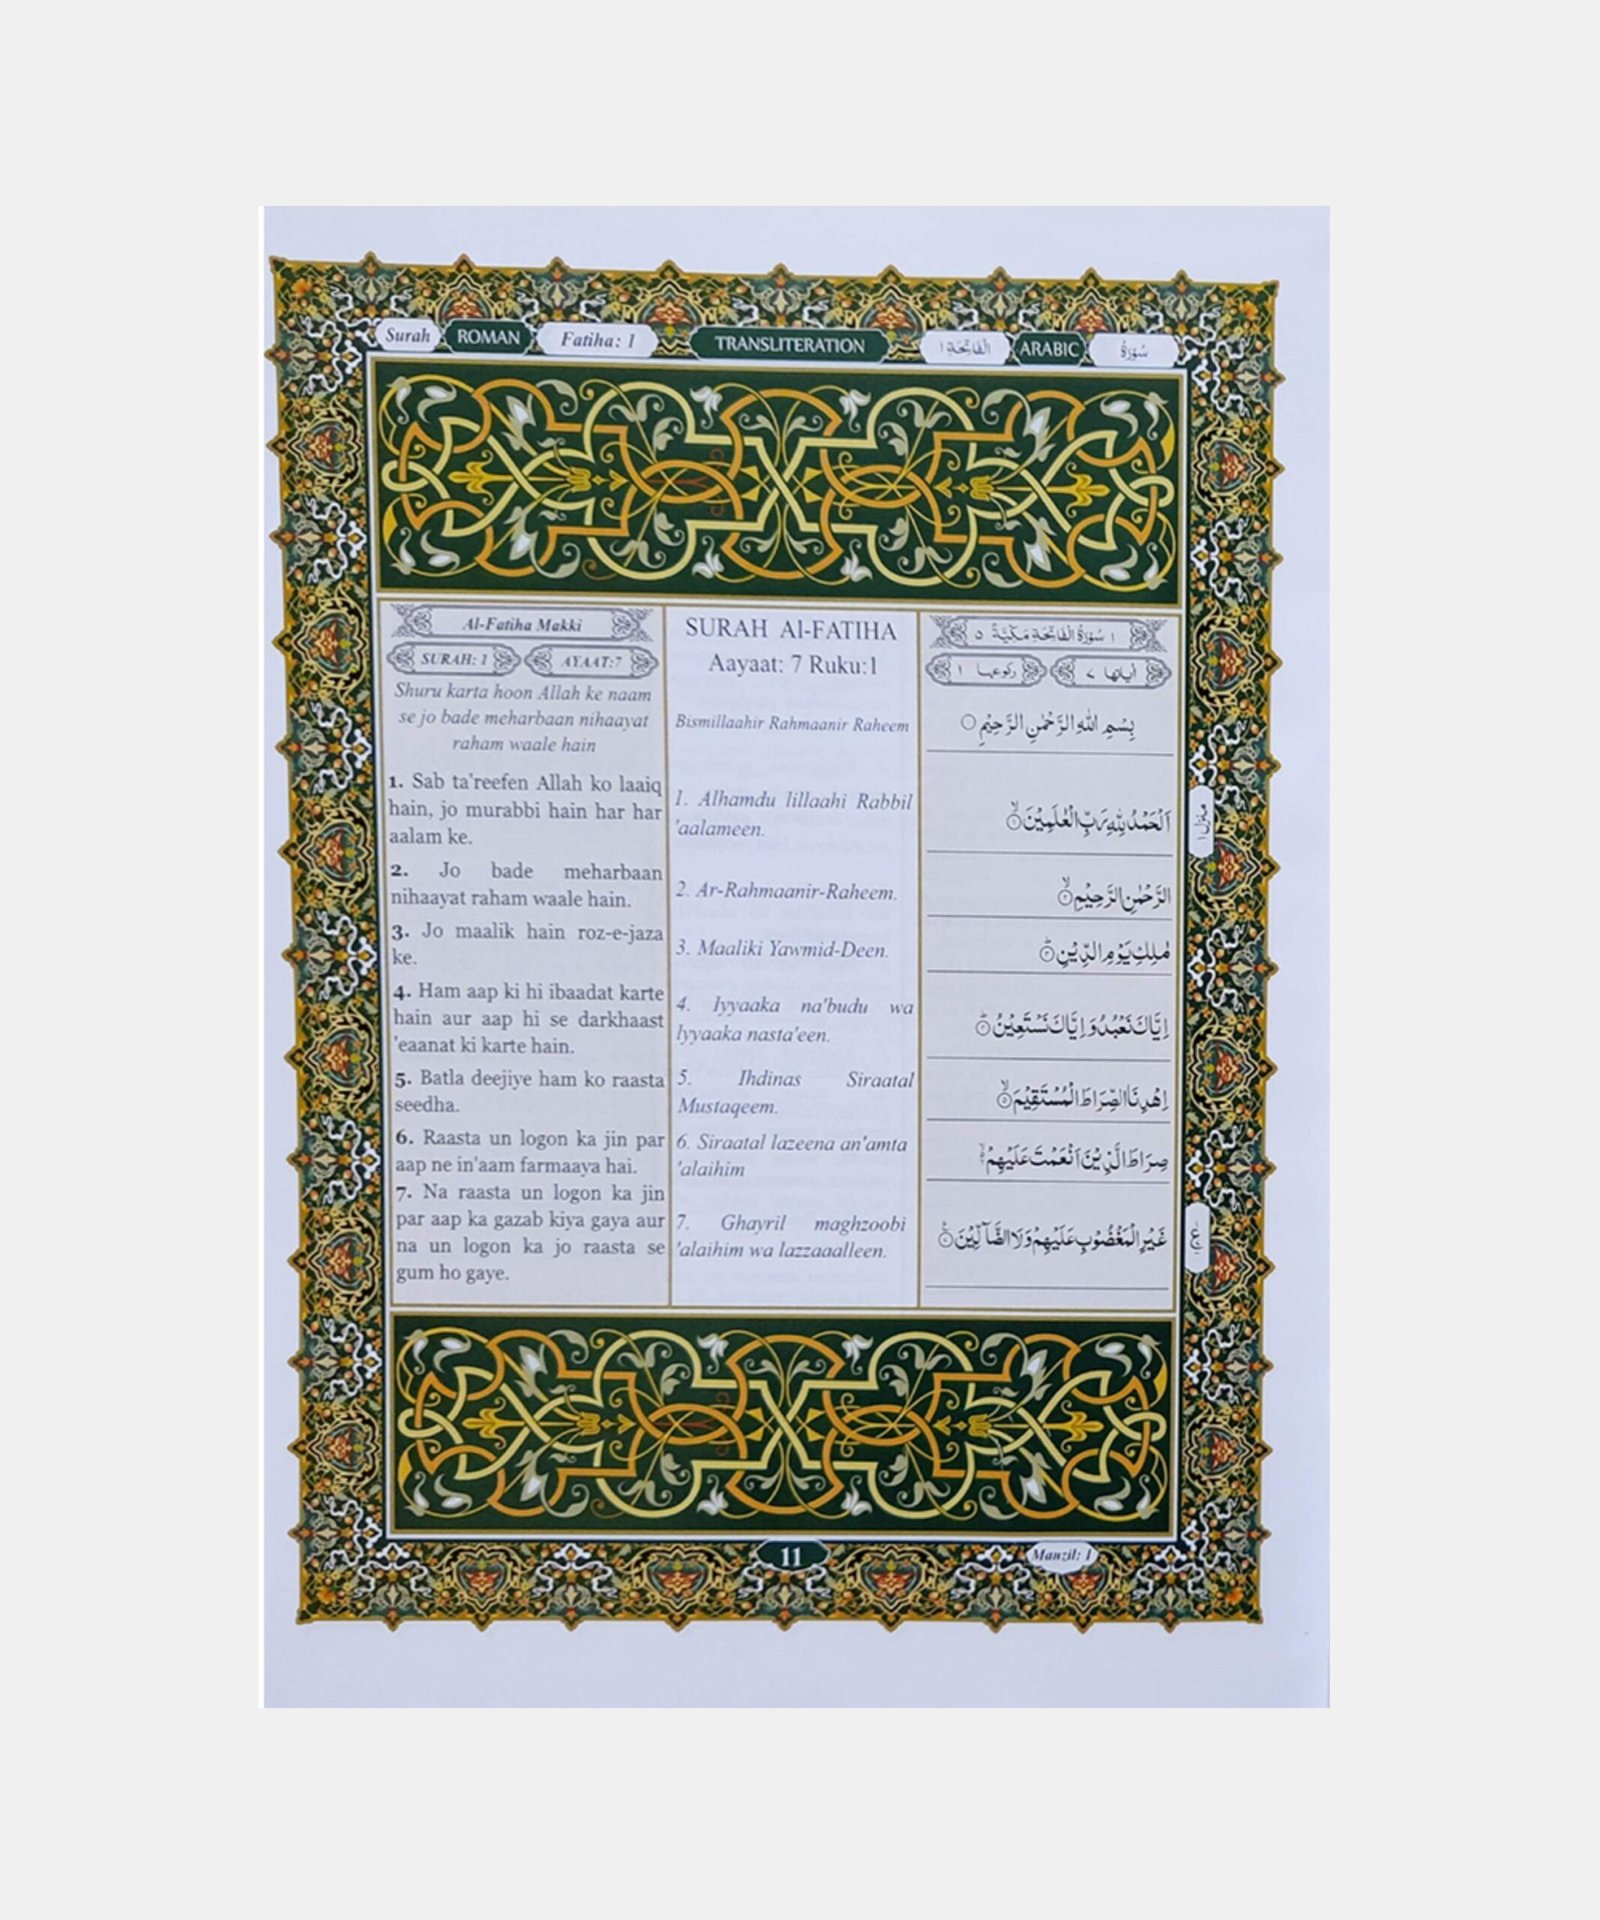 Surah ROMAN Fatiha: 1 TRANSLITERATION الْفَاتِحَة ١ ARABIC سُوْرَةُ
Al-Fatiha Makki
SURAH: 1 AYAAT:7
Shuru karta hoon Allah ke naam
se jo bade meharbaan nihaayat
raham waale hain
1. Sab ta'reefen Allah ko laaiq
hain, jo murabbi hain har har
aalam ke.
2. Jo bade meharbaan
nihaayat raham waale hain.
3. Jo maalik hain roz-e-jaza
ke.
4. Ham aap ki hi ibaadat karte
hain aur aap hi se darkhaast
'eaanat ki karte hain.
5. Batla deejiye ham ko raasta
seedha.
6. Raasta un logon ka jin par
aap ne in'aam farmaaya hai.
7. Na raasta un logon ka jin
par aap ka gazab kiya gaya aur
na un logon ka jo raasta se
gum ho gaye.
SURAH Al-FATIHA
Aayaat: 7 Ruku:1
Bismillaahir Rahmaanir Raheem
1. Alhamdu lillaahi Rabbil
'aalameen.
2. Ar-Rahmaanir-Raheem.
3. Maaliki Yawmid-Deen.
4. Iyyaaka na'budu wa
lyyaaka nasta'een.
5. Ihdinas Siraatal
Mustaqeem.
6. Siraatal lazeena an'amta
'alaihim
7. Ghayril maghzoobi
'alaihim wa lazzaaalleen.
١ سُوْرَةُ الْفَاتِحَةِ مَكِّيَّةٌ ٥
اٰياتها ٧ ركوعها ١
بِسْمِ اللهِ الرَّحْمٰنِ الرَّحِيْمِ
اَلْحَمْدُ لِلّٰهِ رَبِّ الْعٰلَمِيْنَ ١
الرَّحْمٰنِ الرَّحِيْمِ ٢
مٰلِكِ يَوْمِ الدِّيْنِ ٣
اِيَّاكَ نَعْبُدُ وَ اِيَّاكَ نَسْتَعِيْنُ ٤
اِهْدِنَا الصِّرَاطَ الْمُسْتَقِيْمَ ٥
صِرَاطَ الَّذِيْنَ اَنْعَمْتَ عَلَيْهِمْ ٦
غَيْرِ الْمَغْضُوْبِ عَلَيْهِمْ وَلَا الضَّآلِّيْنَ ٧
منزل ١
ع
11
Manzil: 1